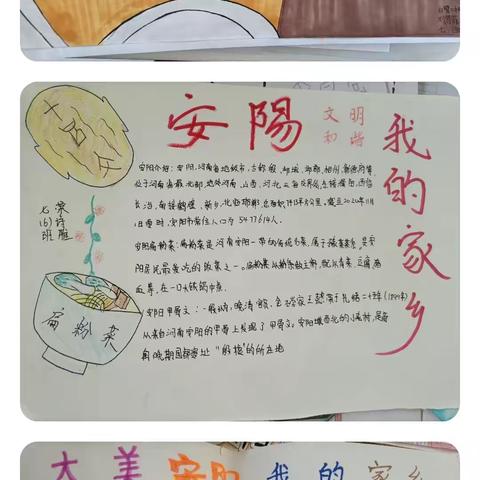 安陽
文明
和谐
我的家乡
安阳介绍：安阳，河南省地级市，古称殷、邺城、邯郸、相州、彰德府等，
处于河南省最北部，地处河南、山西、河北三省交界处，
长治，南接鹤壁、新乡，北临邯郸，总面积7413平方公里，截至2020年11月
1日零时，安阳市常住人口为5477614人。
安阳扁粉菜：扁粉菜是河南安阳一带的传统名菜，属于豫菜菜系，是安
阳居民最爱吃的饭菜之一。扁粉菜以粉条做主料，配以青菜、豆腐、
血等，在一口大铁锅中煮。
安阳甲骨文：一般认为，晚清官员、金石家王懿荣于光绪二十五年（1899年）
从来自河南安阳的甲骨上发现了甲骨文，安阳城西北的小屯村，是商
朝晚期国都遗址“殷墟”的所在地
七
(6)
班
扁粉菜
大美安阳 我的家乡